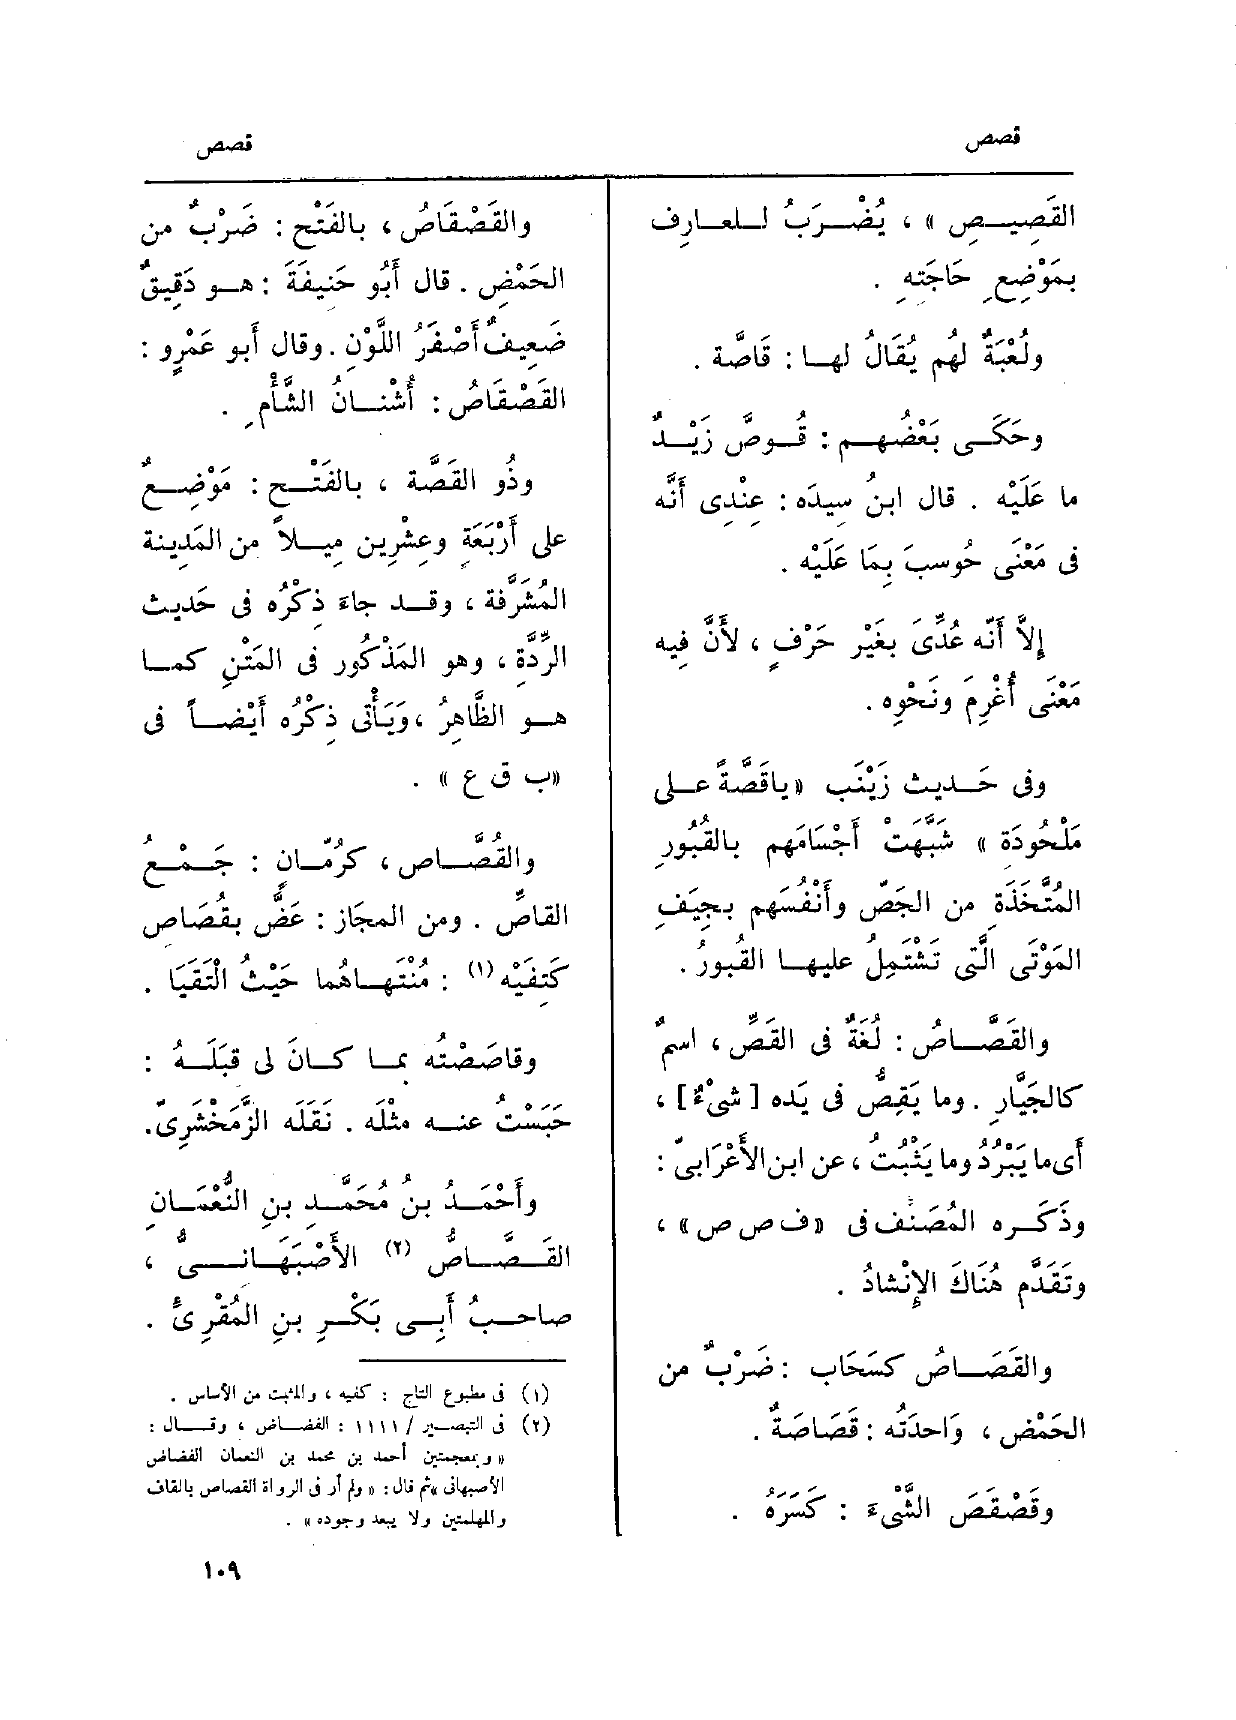 قصص
قصص
القَصِيــصِ » ، يُضْــرَبُ لــلعــارِف
بمَوْضِعِ حَاجَتِهِ .
ولُعْبَةٌ لهُم يُقَالُ لهــا : قَاصَّة .
وحَكَــى بَعْضُهــم : قُــوصَّ زَيْــدٌ
ما عَلَيْه . قال ابنُ سِيدَه : عِنْدِى أَنَّه
فى مَعْنَى حُوسِبَ بِمَا عَلَيْه .
إِلاَّ أَنَّه عُدِّىَ بغَيْرِ حَرْفٍ ، لأَنَّ فِيه
مَعْنَى أُغْرِمَ ونَحْوِه .
وفى حَــدِيث زَيْنَب «ياقَصَّةً عــلى
مَلْحُودَة » شَبَّهَتْ أَجْسَامَهُم بالقُبُورِ
المُتَّخَذَة مِن الجَصّ وأَنْفُسَهُم بجِيَفِ
المَوْتَى الَّتِى تَشْتَمِلُ عليهــا القُبورُ .
والقَصَّــاصُ : لُغَةٌ فى القَصِّ ، اسمٌ
كالجَيَّارِ . وما يَقِصُّ فى يَدِه [ شىْءٌ ] ،
أَى ما يَبْرُدُ وما يَثْبُتُ ، عن ابن الأَعْرَابىّ :
وذَكَــره المُصَنّف فى « ف ص ص » ،
وتَقَدَّم هُنَاكَ الإِنْشادُ .
والقَصَــاصُ كسَحَابٍ : ضَرْبٌ من
الحَمْضِ ، وَاحِدَتُه : قَصَاصَةٌ .
وقَصْقَصَ الشَّىْءَ : كَسَرَهُ .
والقَصْقَاصُ ، بالفَتْح : ضَرْبٌ من
الحَمْضِ . قال أَبُو حَنِيفَةَ : هــو دَقِيقٌ
ضَعِيفٌ أَصْفَرُ اللَّوْنِ . وقال أَبو عَمْرٍو :
القَصْقَاصُ : أُشْنــانُ الشَّأْمِ .
وذُو القَصَّة ، بالفَتْــح : مَوْضِــعٌ
على أَرْبَعَةٍ وعِشْرِين مِيــلاً من المَدِينة
المُشَرَّفة ، وقــد جاءَ ذِكْرُه فى حَدِيث
الرِّدَّة ، وهو المَذْكُور فى المَتْنِ كمــا
هــو الظَّاهِرُ ، وَيَأْتِى ذِكْرُه أَيْضــاً فى
«ب ق ع » .
والقُصَّــاص ، كرُمّــان : جَــمْــعُ
القاصِّ . ومن المجَاز : عَضَّ بقُصَاصِ
كَتِفَيْهِ (١) : مُنْتَهــاهُما حَيْثُ الْتَقَيَا .
وقاصَصْتُه بمــا كــانَ لى قِبَلَــهُ :
حَبَسْتُ عنــه مثْلَه . نَقَلَه الزَّمَخْشَرِىّ .
وأَحْمَــدُ بنُ مُحَمَّــدِ بنِ النُّعْمَــانِ
القَــصَّــاصُ (٢) الأَصْبَهَــانــىُّ ،
صاحــبُ أَبِــى بَكْــرِ بنِ المُقْرِئَ .
(١) فى مطبوع التاج : كفيه ، والمثبت من الأساس .
(٢) فى التبصــير / ١١١١ : الفضــاض ، وقــال :
« وبمعجمتين أحمد بن محمد بن النعمان الفضاض
الأصبهانى » ثم قال : « ولم أر فى الرواة القصاص بالقاف
والمهلمتين ولا يبعد وجوده » .
١٠٩